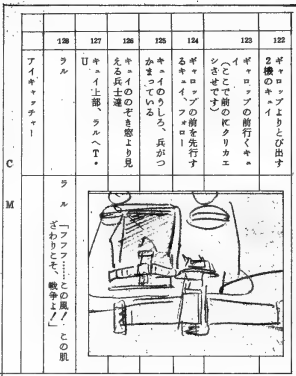 122
ギャロップよりとび出す
2機のキュイ
123
ギャロップの前行くキュ
イ
(ここで前のICクリカエ
シさせです)
124
ギャロップの前を先行す
るキュイ、フォロー
125
キュイのうしろ、兵がつ
かまっている
126
キュイののぞき窓より見
える兵士達
127
キュイ上部、ラルへT・
U
128
ラル
ラル
「フフフ……この風！この肌
ざわりこそ、戦争よ！」
アイキャッチャー
CM